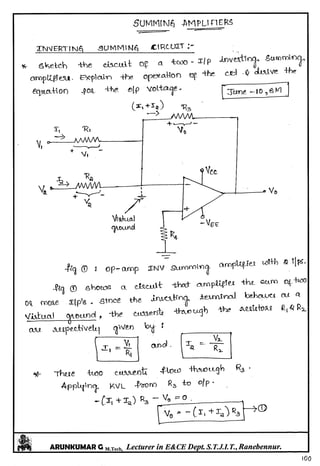 SUMMING AMPLIFIERS
INVERTING SUMMING CIRCUIT :-
* Sketch the circuit of a two - I/p inverting summing
amplifier. Explain the operation of the ckt & derive the
equation for the o/p voltage.
June - 10, 8M
(I1+I2) R3
+ V0 -
I1 R1
V1 + V1 -
I2 R2
V2 + V2 -
VCC
V0
-VEE
Virtual
ground
R4
fig ① : op-amp INV Summing amplifier with 2 I/ps.
fig ① shows a circuit that amplifies the sum of two
or more I/p's. Since the inverting terminal behaves as a
Virtual ground, the currents through the resistors R1 & R2
are respectively given by :
I1 = V1/R1 and. I2 = V2/R2
* These two currents flow through R3.
Applying KVL from R3 to o/p.
-(I1 + I2) R3 - V0 = 0.
V0 = -(I1 + I2) R3 → ①
ARUNKUMAR G M.Tech, Lecturer in E&CE Dept. S.T.J.I.T., Ranebennur.
100